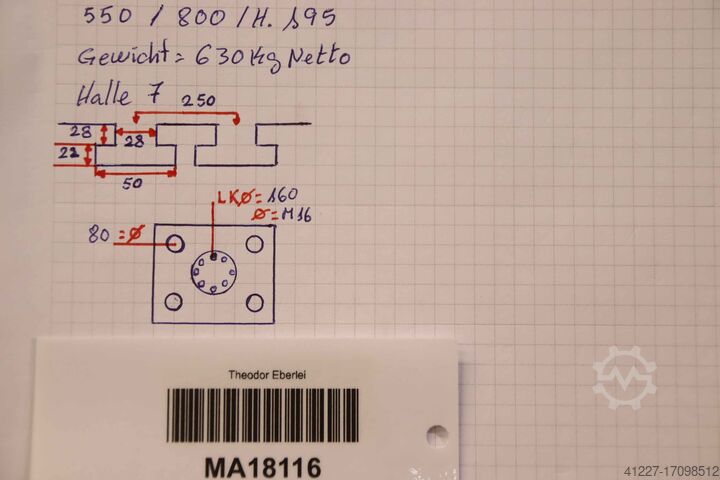 550 / 800 / H. 195
Gewicht = 630 Kg Netto
Halle 7
250
28
28
22
50
LKØ = 160
Ø = M16
80 = Ø
Theodor Eberlei
MA18116
41227-17098512